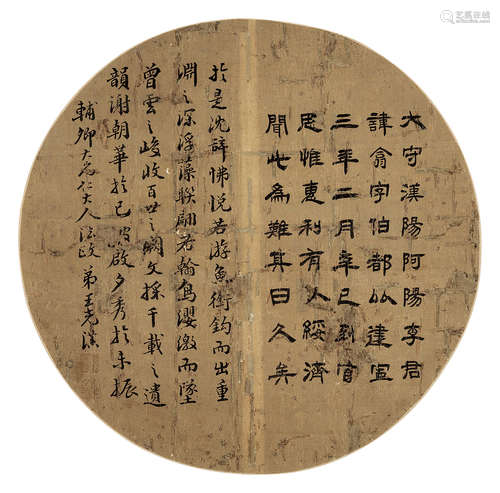 大守漢陽阿陽李君
諱翕字伯都以建寧
三年二月辛巳到官
思惟惠利有以綏濟
聞此為難其日久矣
於是沈辭怫悅若游魚銜鉤而出重
淵之深浮藻聯翩若翰鳥纓繳而墜
曾雲之峻收百世之闕文採千載之遺
韻謝朝華於已披啟夕秀於未振
輔卿大仁大人法政 弟王
艺狐在线